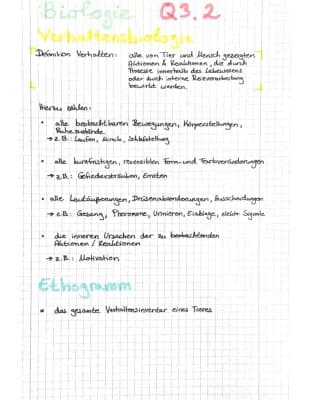 Biologie Q3.2
Verhaltensbiologie
Definition Verhalten: alle von Tier und Mensch gezeigten
Aktionen & Reaktionen, die durch
Prozesse innerhalb des Lebewesens
oder durch interne Reizverarbeitung
bewirkt werden.
Hierzu zählen:
• alle beobachtbaren Bewegungen, Körperstellungen,
Ruhezustände
→ z.B.: Laufen, Mimik, Schlafstellung
• alle kurzfristigen, reversiblen Form- und Farbveränderungen
→ z.B.: Gefiedersträuben, Erröten
• alle Lautäußerungen, Drüsenabsonderungen, Ausscheidungen
→ z.B.: Gesang, Pheromone, Urinieren, Eiablage, elektr. Signale
• die inneren Ursachen der zu beobachtenden
Aktionen / Reaktionen
→ z.B.: Motivation
Ethogramm
• das gesamte Verhaltensinventar eines Tieres